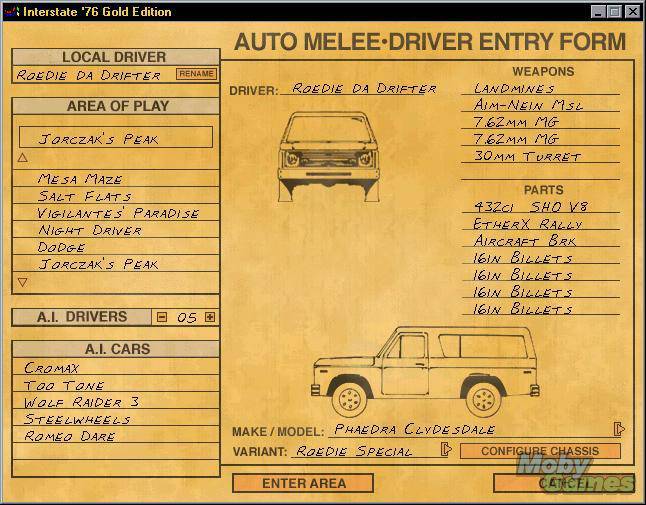 Interstate '76 Gold Edition
AUTO MELEE•DRIVER ENTRY FORM
LOCAL DRIVER
ROEDIE DA DRIFTER RENAME
AREA OF PLAY
JORCZAK'S PEAK
MESA MAZE
SALT FLATS
VIGILANTES' PARADISE
NIGHT DRIVER
DODGE
JORCZAK'S PEAK
A.I. DRIVERS 05
A.I. CARS
CROMAX
TOO TONE
WOLF RAIDER 3
STEELWHEELS
ROMEO DARE
DRIVER: ROEDIE DA DRIFTER
WEAPONS
LANDMINES
AIM-NEIN MSL
7.62MM MG
7.62MM MG
30MM TURRET
PARTS
432CI SHO V8
ETHERX RALLY
AIRCRAFT BRK
16IN BILLETS
16IN BILLETS
16IN BILLETS
16IN BILLETS
MAKE / MODEL: PHAEDRA CLYDESDALE
VARIANT: ROEDIE SPECIAL CONFIGURE CHASSIS
ENTER AREA CANCEL
Moby
Games